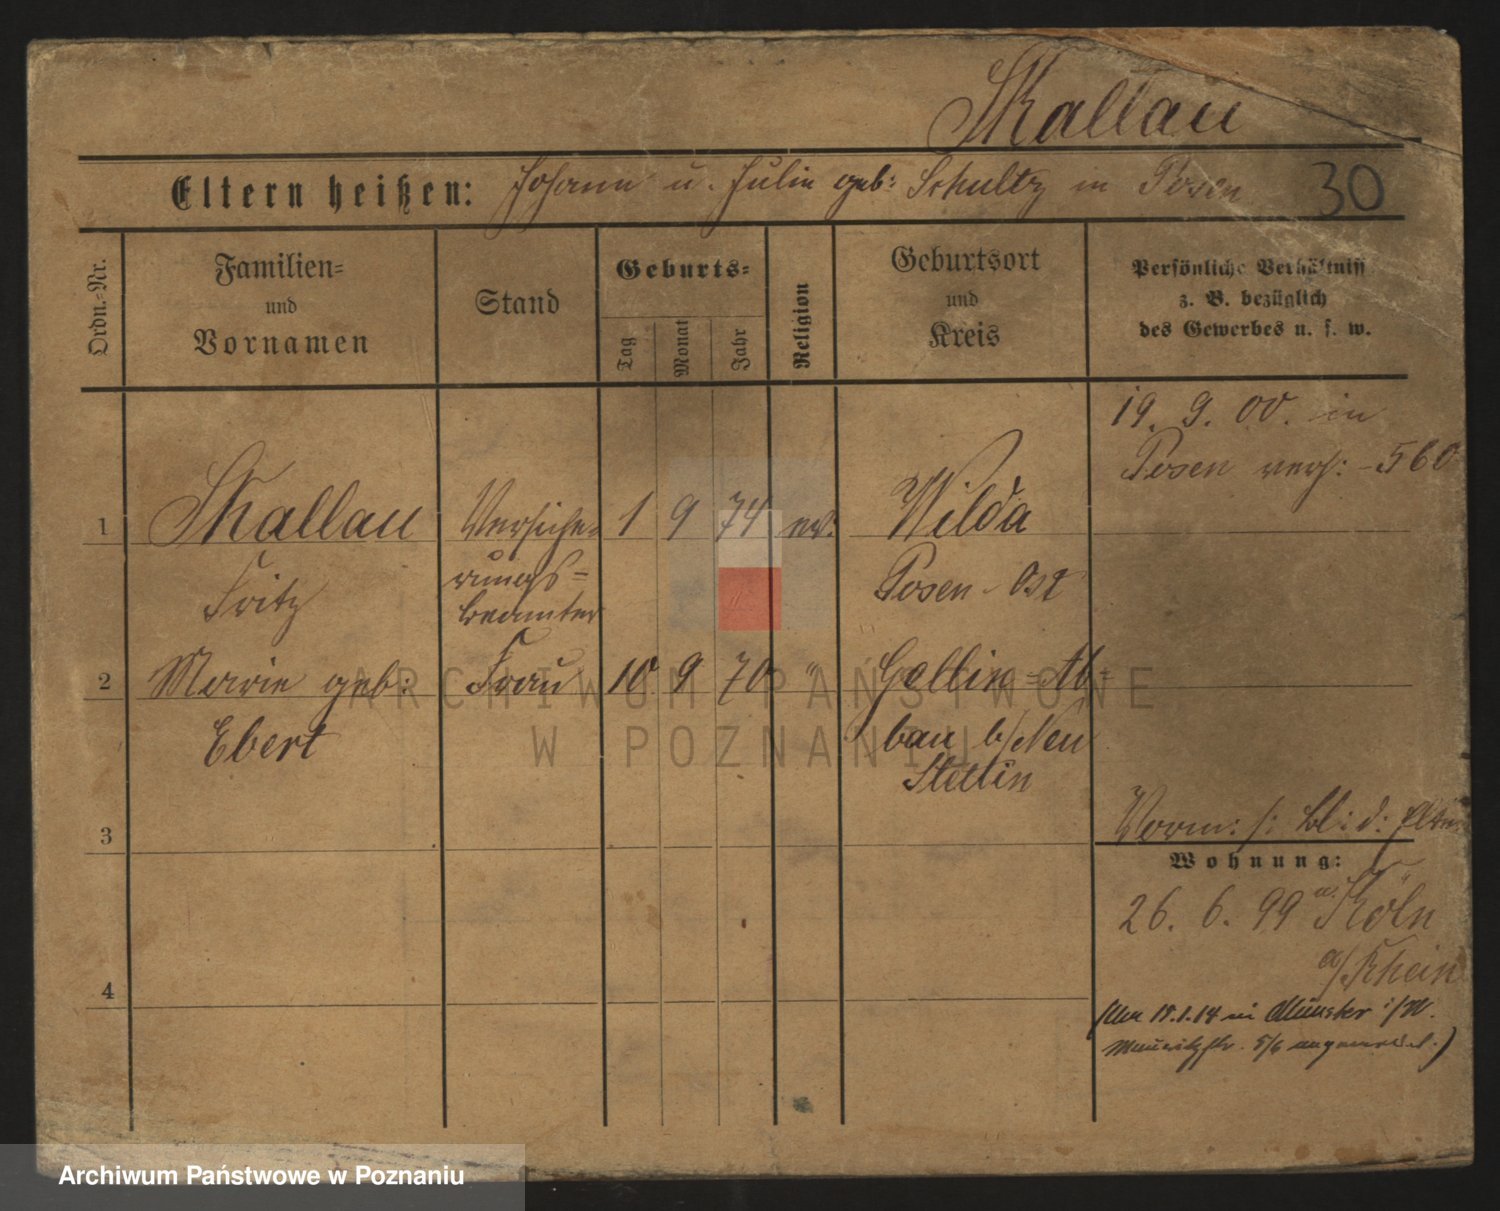 Skallau
Eltern heißen: Johann u. Julie geb: Schultz in Posen 30
Ordn.-Nr.
Familien-
und
Vornamen
Stand
Geburts-
Tag
Monat
Jahr
Religion
Geburtsort
und
Kreis
Persönliche Verhältniss
z. B. bezüglich
des Gewerbes u. s. w.
19. 9. 00. in
Posen verh: 560
1 Skallau Versiche- 1 9 74 ev. Wilda
Fritz rungs- Posen Ost
beamter
2 Marie geb: Frau 10 9 70 " Gallin-Ab-
Ebert bau b/Neu
Stettin
3
Vorm: Bl: d: Eltern
Wohnung:
26. 6. 99 Köln
a/Rhein
4
18.1.14 in Münster i/W.
Mauritzstr. 5/6 angemeld.)
ARCHIWUM PAŃSTWOWE
W POZNANIU
Archiwum Państwowe w Poznaniu